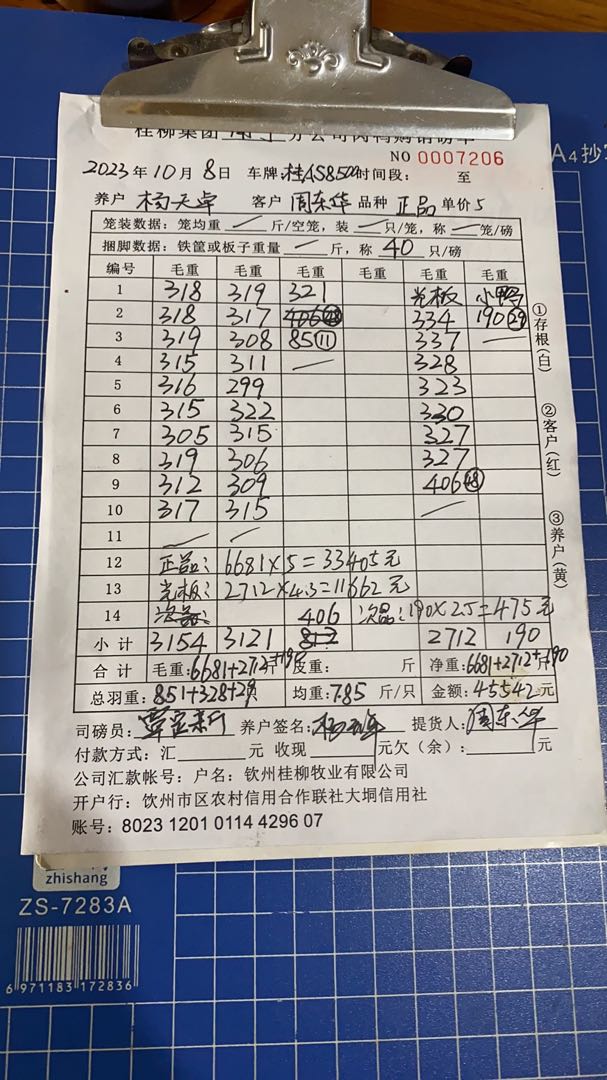 桂柳集团 南宁 分公司肉鸭购销磅单
NO 0007206
2023年10月8日 车牌:桂AS8500 时间段: 至
养户 杨天卓 客户 周东华 品种 正品 单价 5
笼装数据:笼均重 斤/空笼,装 只/笼,称 笼/磅
捆脚数据:铁筐或板子重量 斤,称 40 只/磅
编号 毛重 毛重 毛重 毛重 毛重 毛重
1 318 319 321 光板 小鸭
2 318 317 406 48 334 190 29
3 319 308 85 11 337
4 315 311 328
5 316 299 323
6 315 322 330
7 305 315 327
8 319 306 327
9 312 309 406 48
10 317 315
11
12 正品:6681×5=33405元
13 光板:2712×4.3=11662元
14 次品: 406 次品:190×2.5=475元
小计 3154 3121 812 2712 190
合计 毛重:6681+2712+190斤 皮重: 斤 净重:6681+2712+190斤
总羽重:851+328+29 均重:7.85 斤/只 金额:45542元
司磅员: 养户签名: 提货人:周东华
付款方式:汇 元 收现 元欠(余): 元
公司汇款帐号:户名:钦州桂柳牧业有限公司
开户行:饮州市区农村信用合作联社大垌信用社
账号:8023 1201 0114 4296 07
①存根(白)
②客户(红)
③养户(黄)
A4抄写
zhishang
ZS-7283A
6 971183 172836